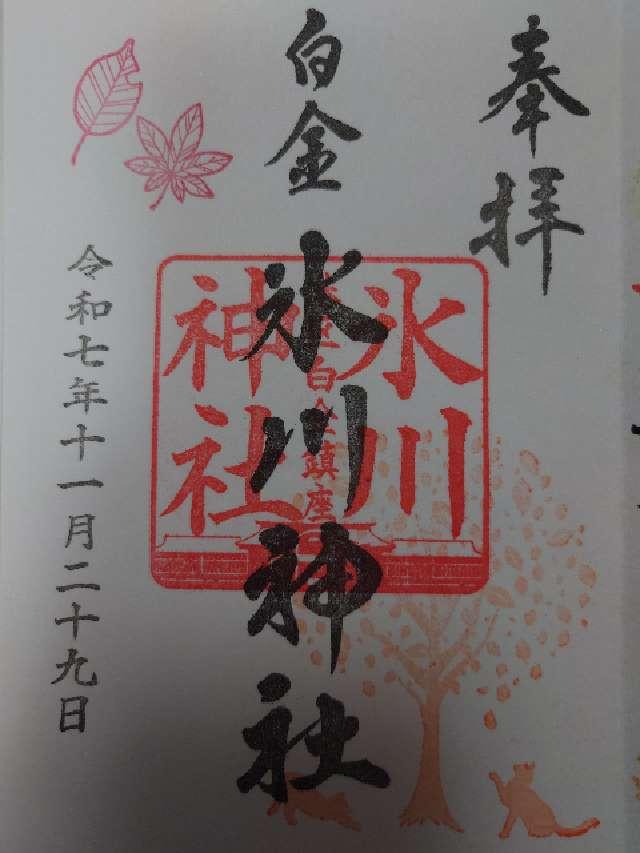 奉拝
白金
氷川神社
氷川
白金鎮座
神社
令和七年十一月二十九日